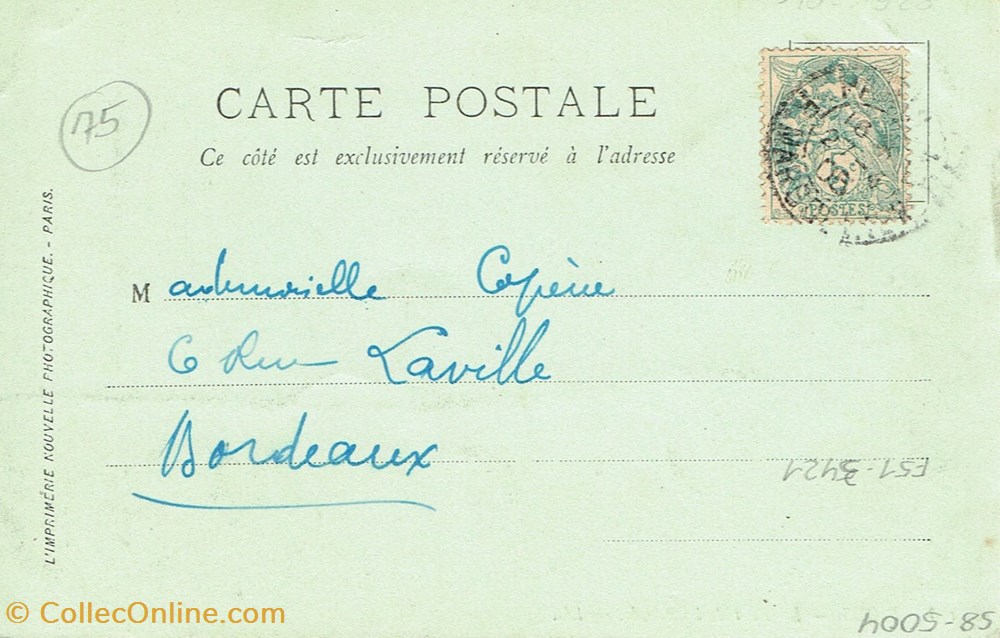 75
CARTE POSTALE
Ce côté est exclusivement réservé à l'adresse
POSTES
Mademoiselle
6 Rue Laville
Bordeaux
L'IMPRIMÉRIE NOUVELLE PHOTOGRAPHIQUE. - PARIS.
F51-3421
58-5004
© CollecOnline.com